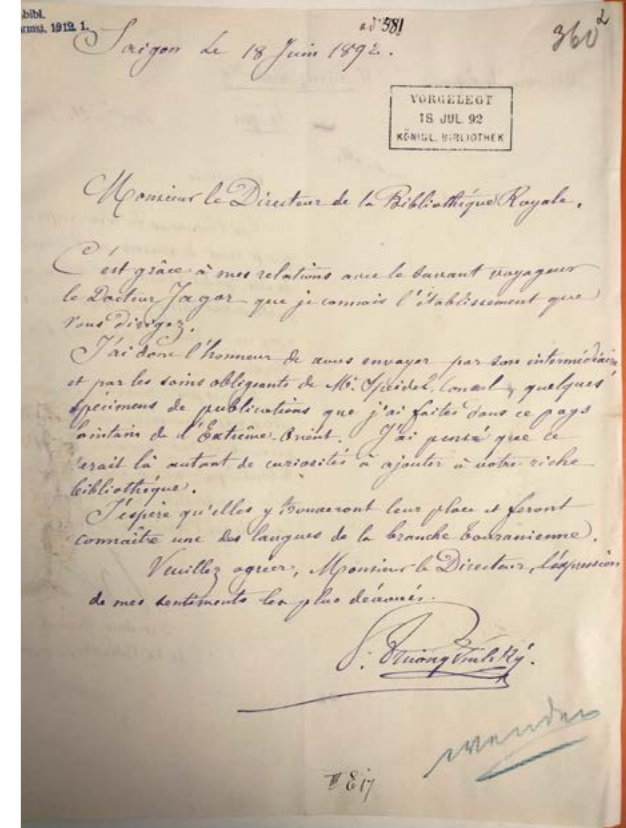 bibl.
1912. 1.
ad 581
360 2
Saigon le 18 Juin 1892.
VORGELEGT
18. JUL. 92
KÖNIGL. BIBLIOTHEK
Monsieur le Directeur de la Bibliothéque Royale.
C'est grâce à mes relations avec le savant voyageur
le Docteur Jagor que je connais l'établissement que
vous dirigez.
J'ai donc l'honneur de vous envoyer par son intermédiaire
et par les soins obligeants de Mr. Speidel, Consul, quelques
spécimens de publications que j'ai faites dans ce pays
lointain de l'Extrême-Orient. J'ai pensé que ce
serait là autant de curiosités à ajouter à votre riche
bibliothéque.
J'espère qu'elles y trouveront leur place et feront
connaître une des langues de la branche touranienne.
Veuillez agréer, Monsieur le Directeur, l'expression
de mes sentiments les plus dévoués.
P. Truong Vinh Ký.
wenden
III E 17